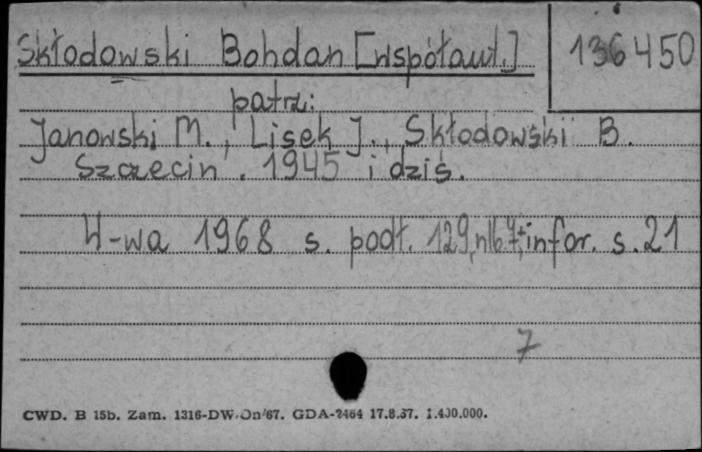 Skłodowski Bohdan [współaut.] 136450
patrz:
Janowski M., Lisek J., Skłodowski B.
Szczecin. 1945 i dziś.
W-wa 1968 s. podł. 129, infor. s. 21
7
CWD. B 15b. Zam. 1316-DW-Dn/67. GDA-2464 17.8.67. 1.400.000.